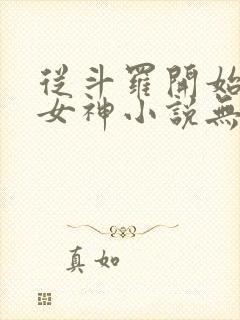 從斗羅開始
女神小說無
真如